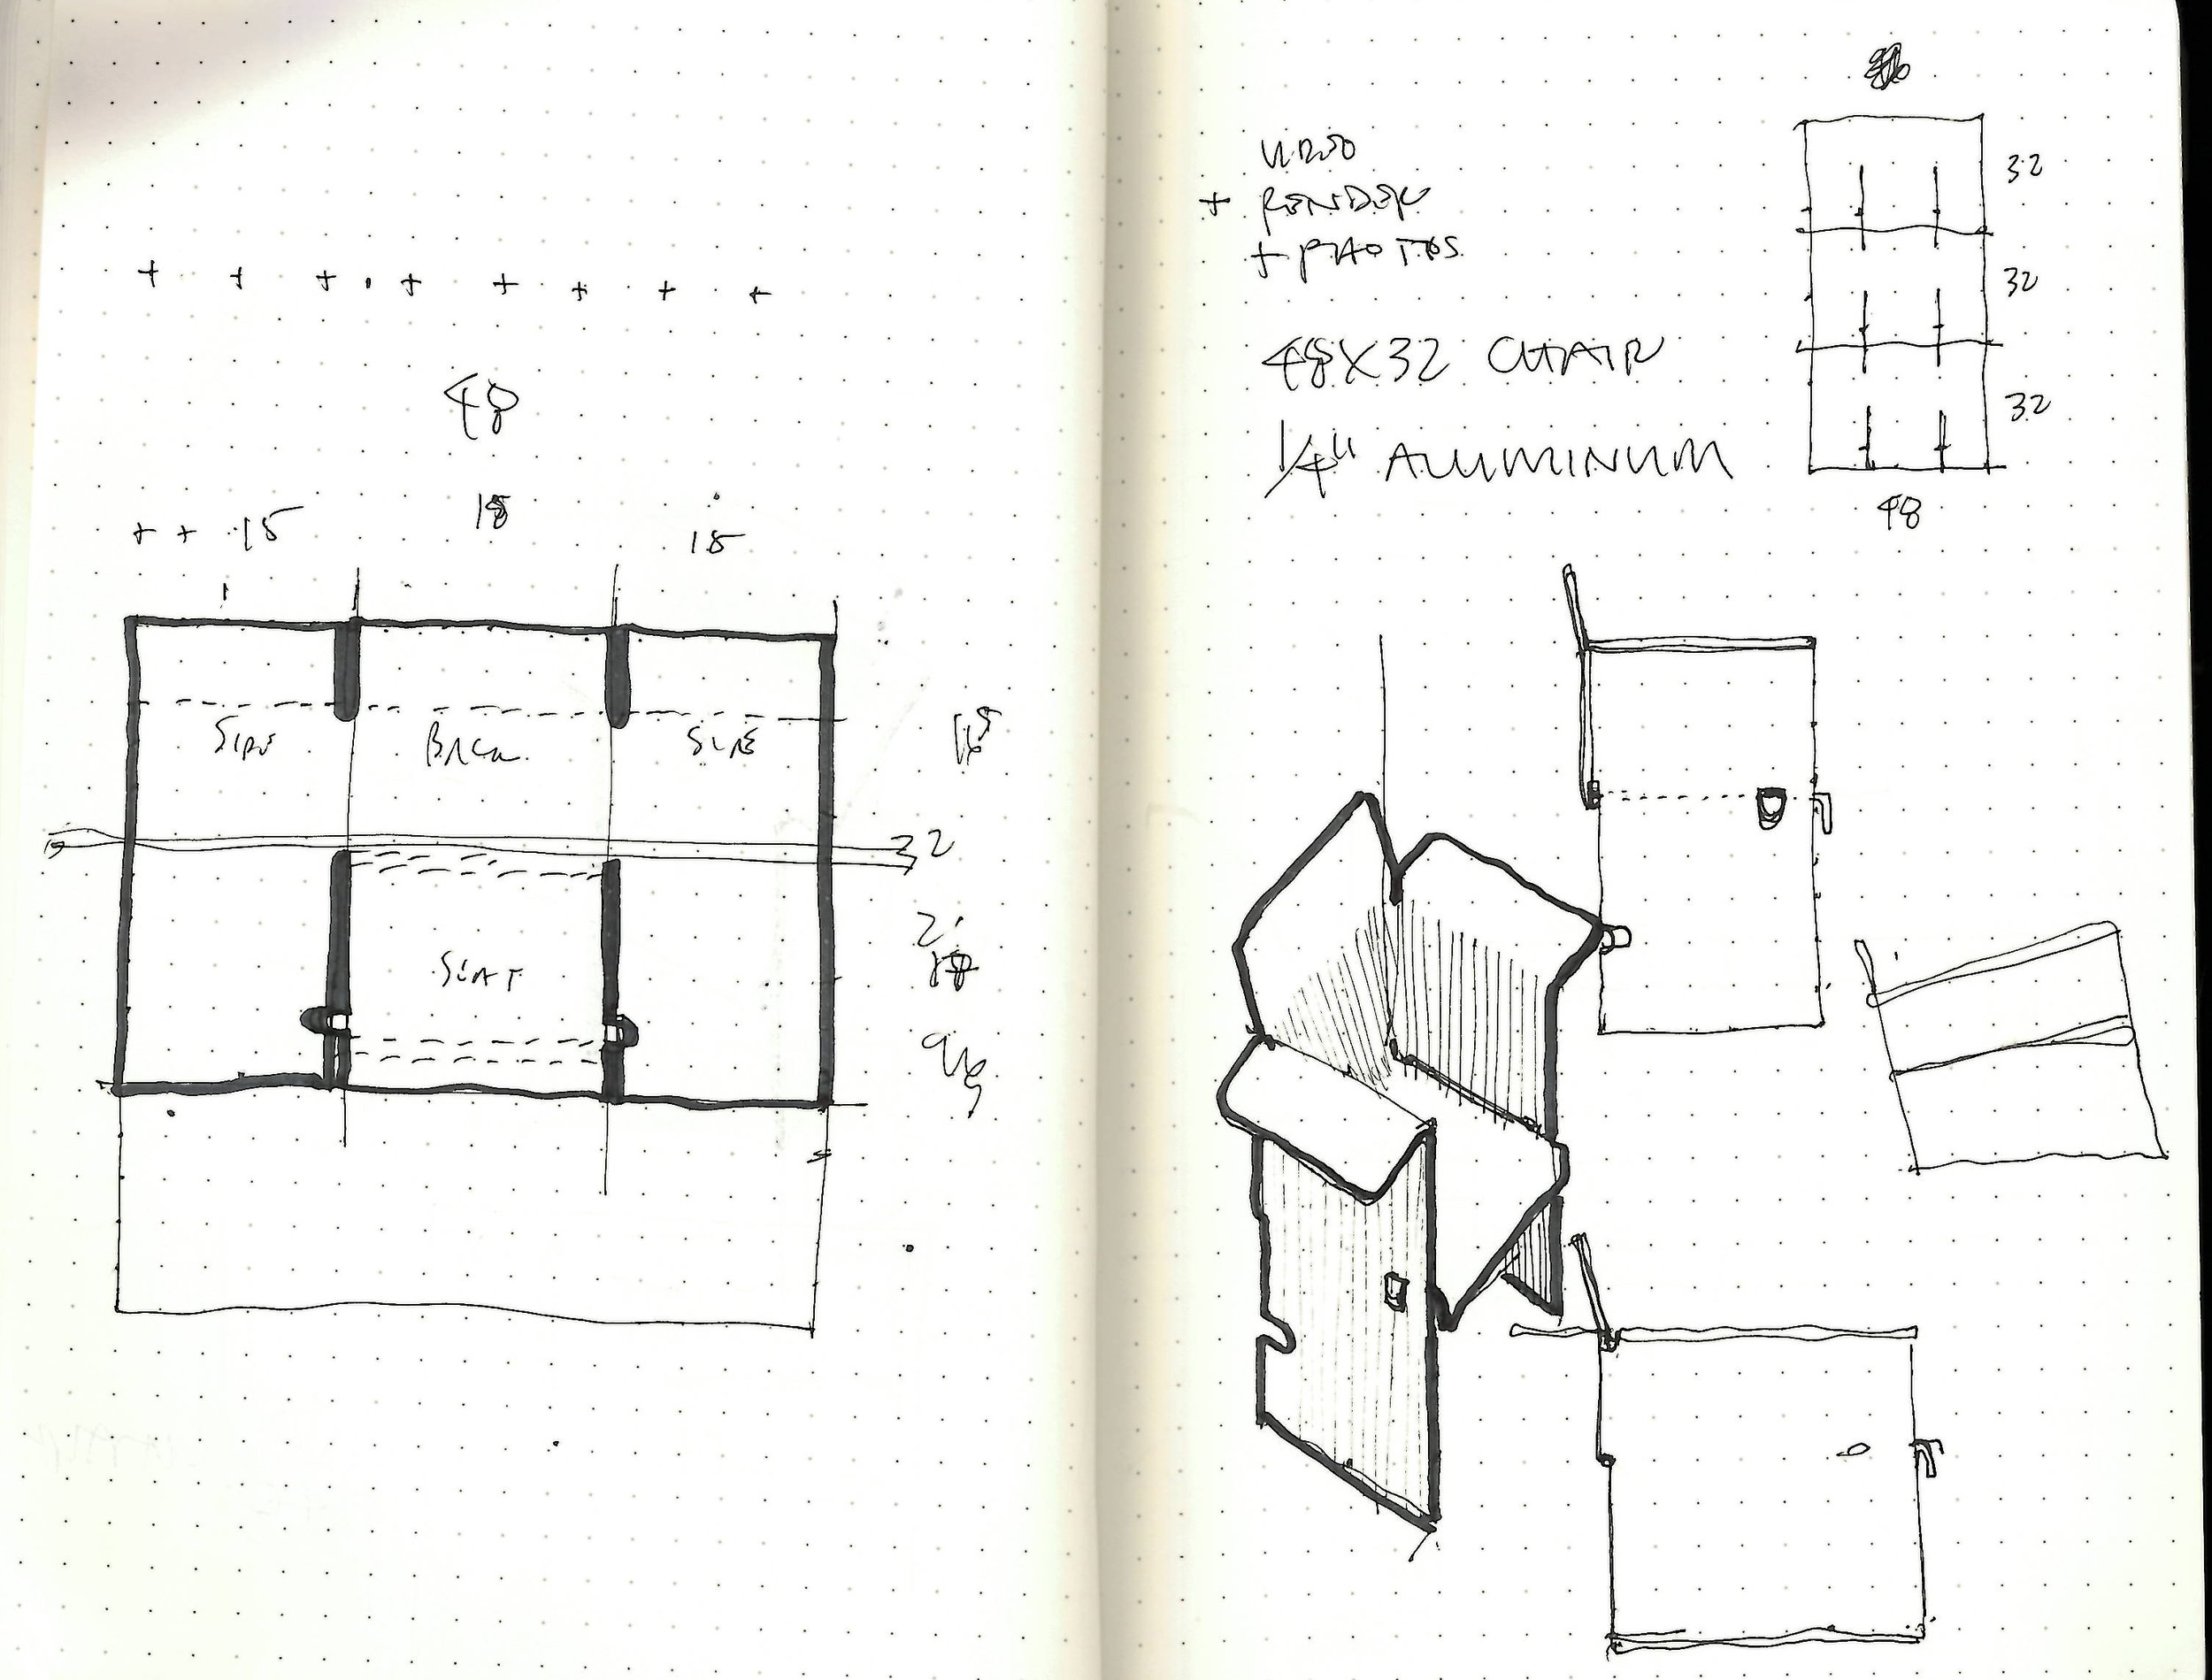 48
15
18
15
SIDE
BACK
SIDE
32
SEAT
+ RENDER
+ PHOTOS
48X32 CHAIR
1/4" ALUMINUM
32
32
32
48